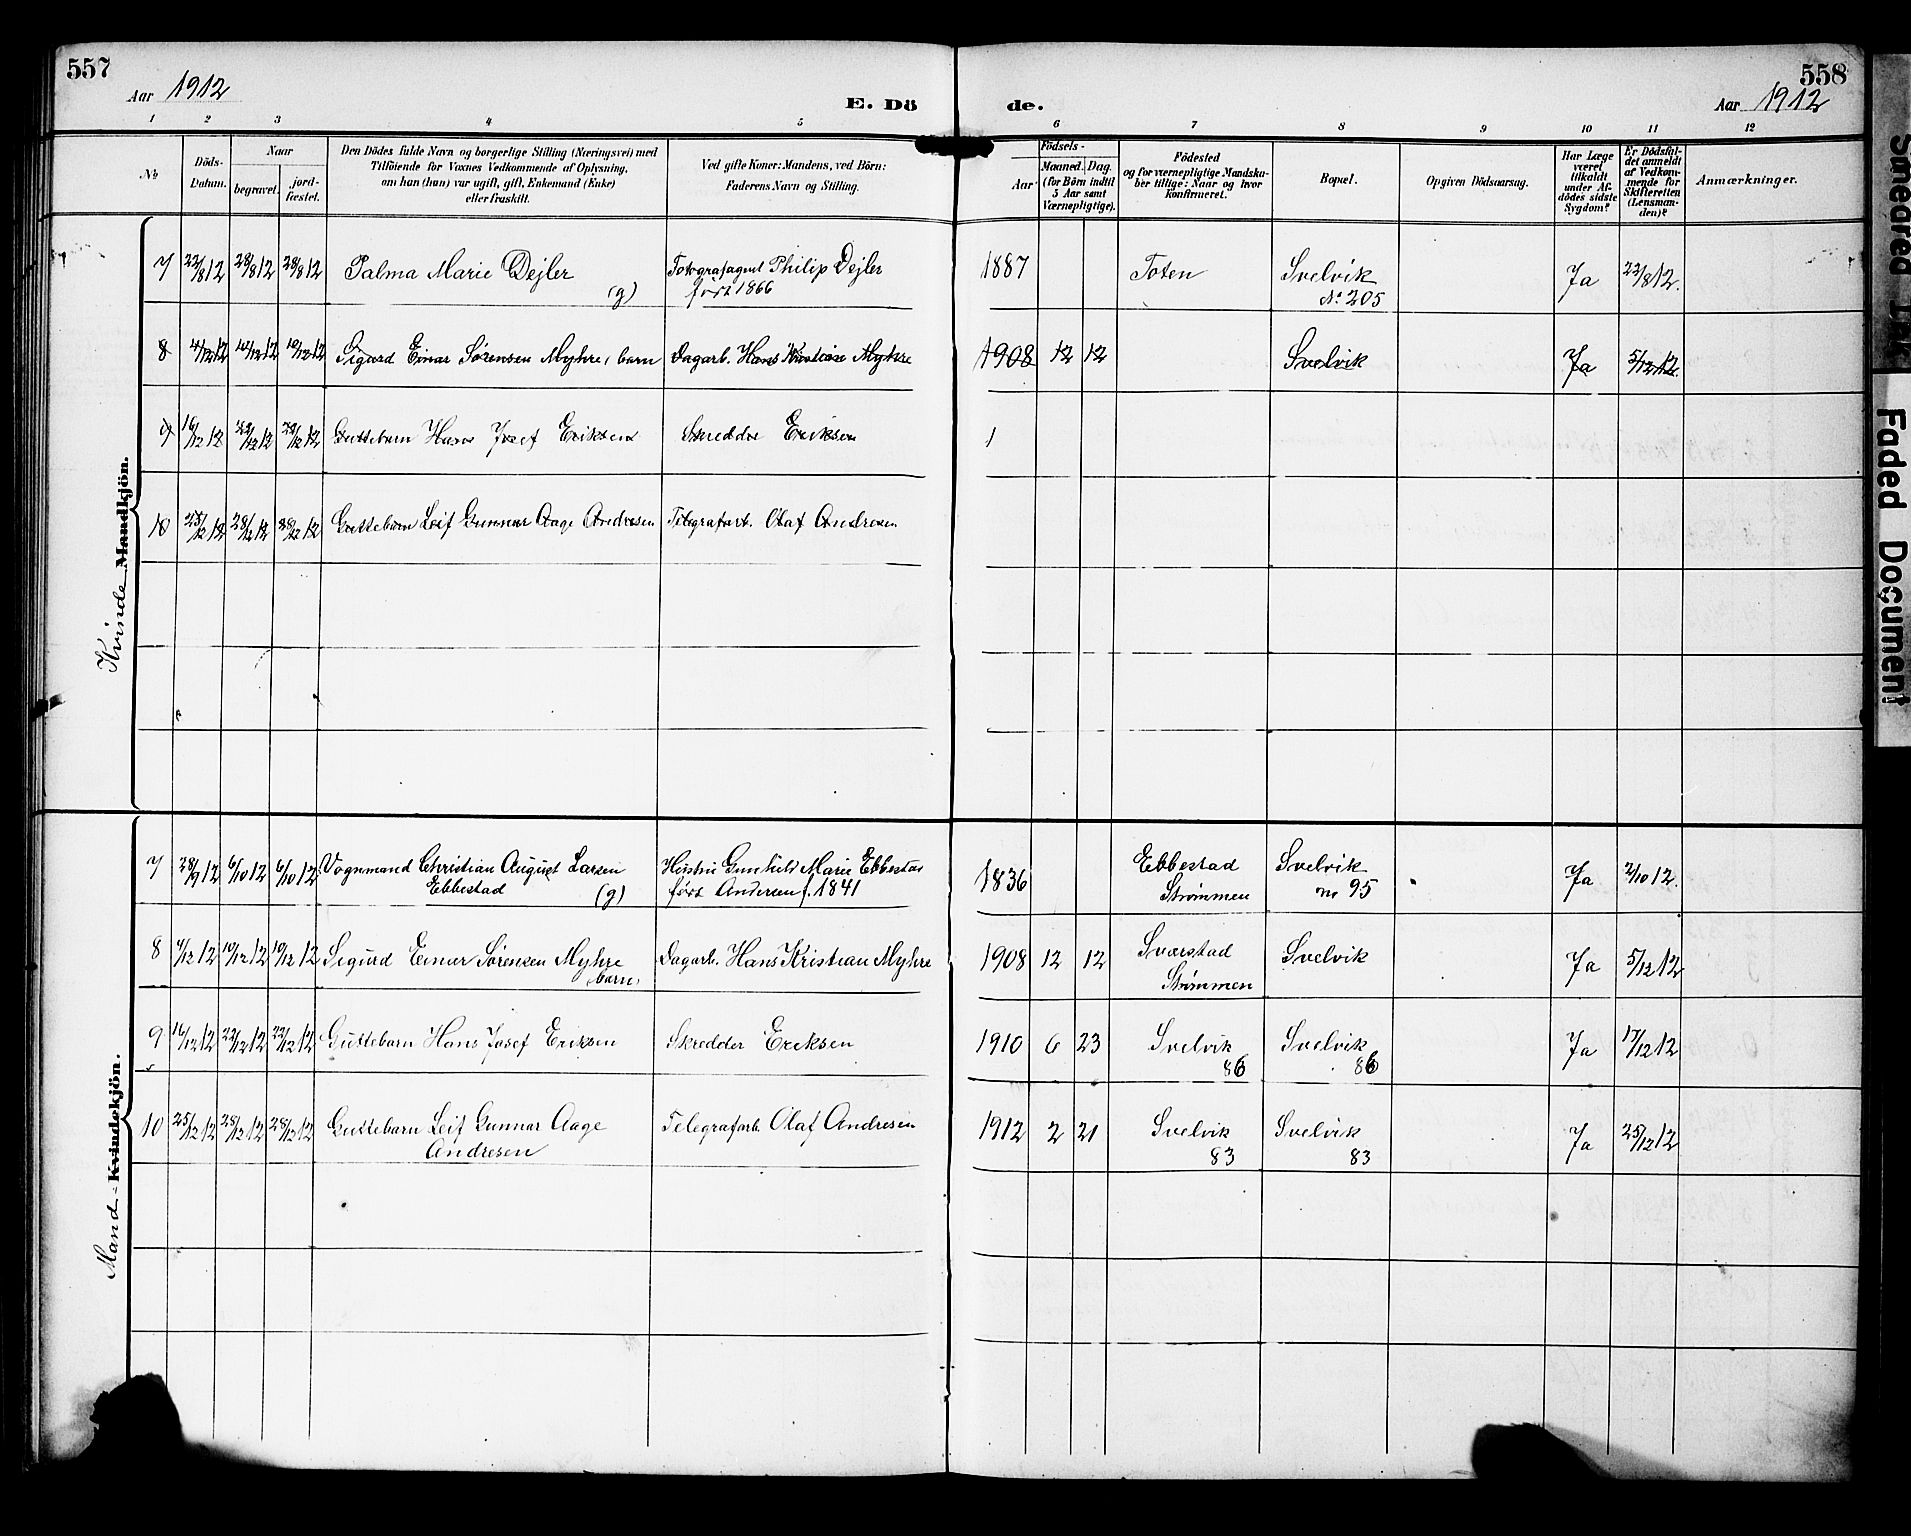 557
Aar 1912
E. Dö
de.
558
Aar 1912
1 2 3 4 5 6 7 8 9 10 11 12
No
Döds-
Datum.
Naar
begravet.
jord-
fæstet.
Den Dödes fulde Navn og borgerlige Stilling (Næringsvei) med
Tilföiende for Voxnes Vedkommende af Oplysning,
om han (hun) var ugift, gift, Enkemand (Enke)
eller fraskilt.
Ved gifte Koner: Mandens, ved Börn:
Faderens Navn og Stilling.
Födsels-
Aar.
Maaned. Dag.
(for Börn indtil
5 Aar samt
Værnepligtige).
Födested
og for værnepligtige Mandska-
ber tillige: Naar og hvor
konfirmeret.
Bopæl.
Opgiven Dödsaarsag.
Har Læge
været
tilkaldt
under Af-
dödes sidste
Sygdom?
Er Dödsfal-
det anmeldt
af Vedkom-
mende for
Skifteretten
(Lensman-
den)?
Anmærkninger.
Kvinde Mandkjön.
7 22/8 12 28/8 12 28/8 12 Palma Marie Dejler Fotografagent Philip Dejler 1887 Toten Svelvik Ja 22/8 12.
(g) født 1866 No 205
8 4/12 12 10/12 12 10/12 12 Sigurd Einar Sørensen Myhre, barn Dagarb. Hans Kristian Myhre 1908 12 12 Svelvik Ja 5/12 12.
9 16/12 12 22/12 12 22/12 12 Guttebarn Hans Josef Eriksen Skredder Eriksen 1
10 25/12 12 28/12 12 28/12 12 Guttebarn Leif Gunnar Aage Andresen Telegrafarb. Olaf Andresen
Mand- Kvindekjön.
7 28/9 12 6/10 12 6/10 12 Vognmand Christian August Larsen Hustru Gunhild Marie Ebbestad 1836 Ebbestad Svelvik Ja 2/10 12.
Ebbestad (g) født Andersen f. 1841 Strømmen no 95
8 4/12 12 10/12 12 10/12 12 Sigurd Einar Sørensen Myhre Dagarb. Hans Kristian Myhre 1908 12 12 Sværstad Svelvik Ja 5/12 12
barn, Strømmen
9 16/12 12 22/12 12 22/12 12 Guttebarn Hans Josef Eriksen Skredder Eriksen 1910 6 23 Svelvik Svelvik Ja 17/12 12
86 86
10 25/12 12 28/12 12 28/12 12 Guttebarn Leif Gunnar Aage Telegrafarb. Olaf Andresen 1912 2 21 Svelvik Svelvik Ja 25/12 12
Andresen 83 83
Smeared Ink
Faded Document